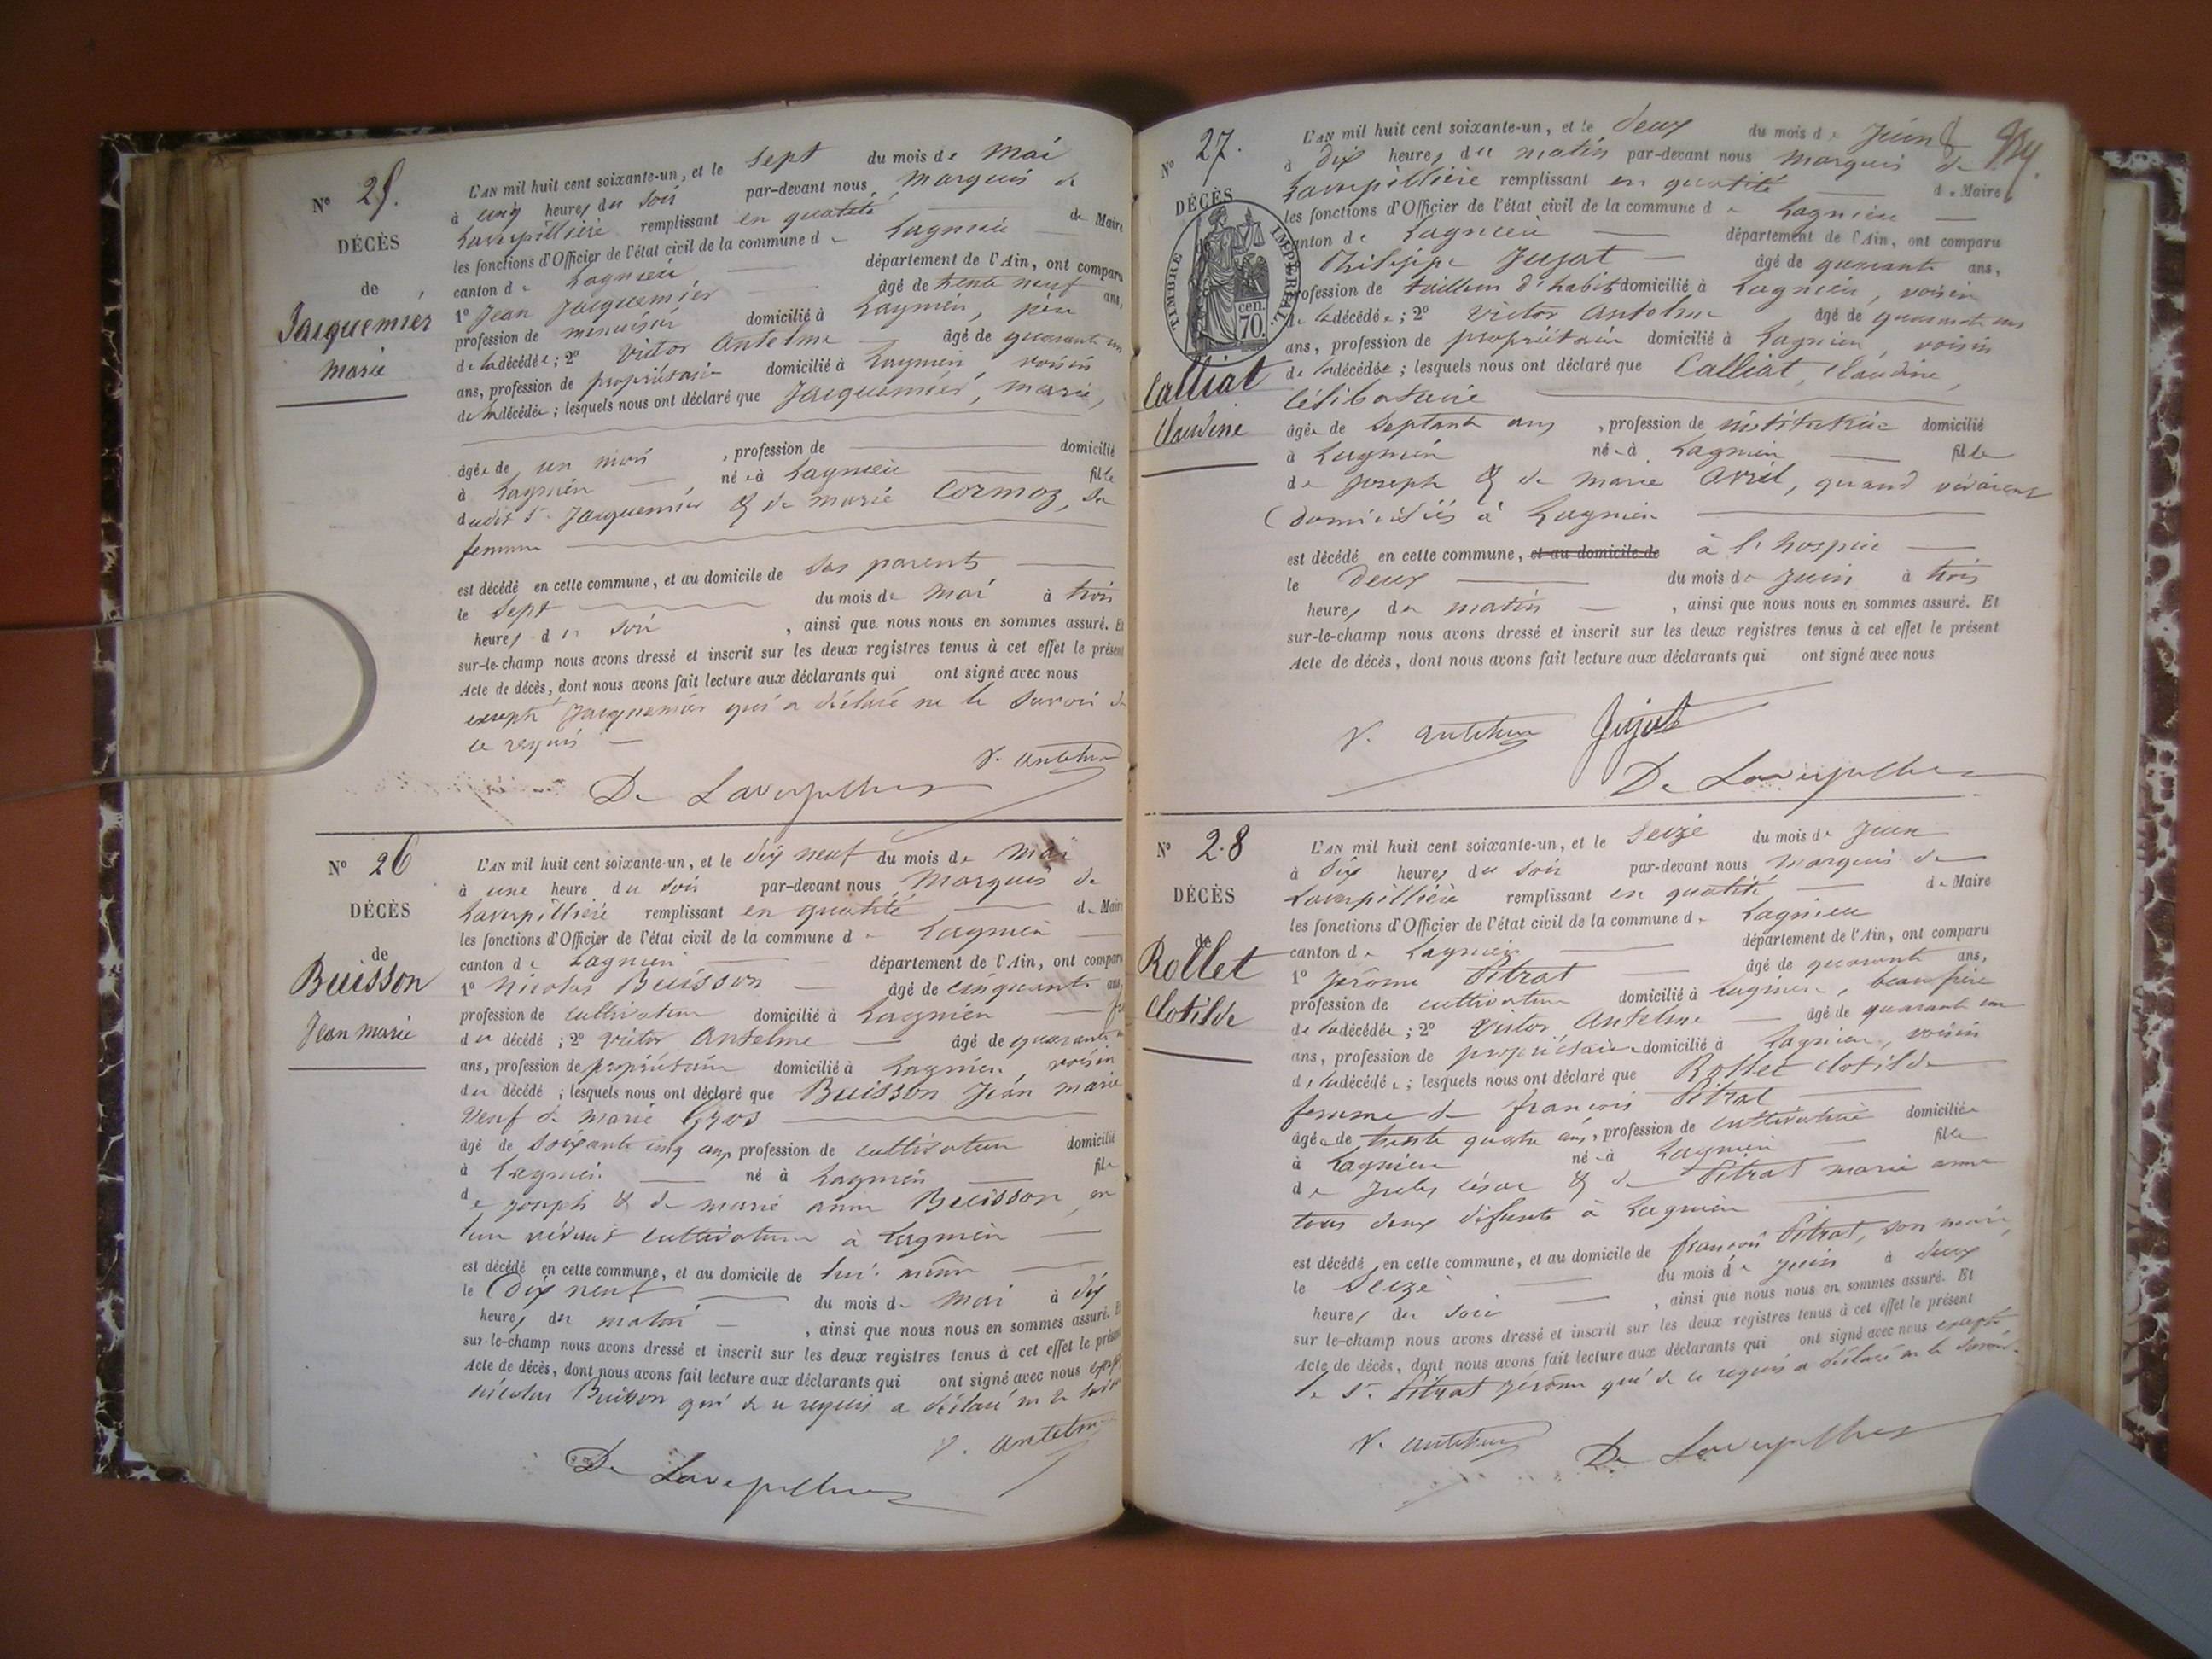 N° 25.
DÉCÈS
de
Jacquemier
marie
L'AN mil huit cent soixante-un, et le sept du mois de mai
à cinq heures du soir par-devant nous, Marquis de
Laverpillière remplissant en qualité de Maire
les fonctions d'Officier de l'état civil de la commune de Lagnieu
canton de Lagnieu département de l'Ain, ont comparu
1° Jean Jacquemier âgé de trente neuf ans,
profession de menuisier domicilié à Lagnieu, père
de la décédée ; 2° Victor Antelme âgé de quarante un
ans, profession de propriétaire domicilié à Lagnieu, voisin
de la décédée ; lesquels nous ont déclaré que Jacquemier, marie,
âgée de un mois , profession de domicilié
à Lagnieu née à Lagnieu fille
dudit Sr Jacquemier & de marie Cormoz, sa
femme
est décédé en cette commune, et au domicile de ses parents
le sept du mois de mai à trois
heures du soir , ainsi que nous nous en sommes assuré. Et
sur-le-champ nous avons dressé et inscrit sur les deux registres tenus à cet effet le présent
Acte de décès, dont nous avons fait lecture aux déclarants qui ont signé avec nous
excepté Jacquemier qui a déclaré ne le savoir de
ce requis
V. Antelme
De Laverpilliere
N° 26
DÉCÈS
de
Buisson
Jean marie
L'AN mil huit cent soixante-un, et le dix neuf du mois de mai
à une heure du soir par-devant nous Marquis de
Laverpillière remplissant en qualité de Maire
les fonctions d'Officier de l'état civil de la commune de Lagnieu
canton de Lagnieu département de l'Ain, ont comparu
1° Nicolas Buisson âgé de cinquante ans,
profession de cultivateur domicilié à Lagnieu
du décédé ; 2° Victor Antelme âgé de quarante un
ans, profession de propriétaire domicilié à Lagnieu, voisin
du décédé ; lesquels nous ont déclaré que Buisson Jean marie
veuf de marie Gros
âgé de soixante cinq ans, profession de cultivateur domicilié
à Lagnieu né à Lagnieu fils
de joseph & de marie anne Buisson, en
leur vivant cultivateurs à Lagnieu
est décédé en cette commune, et au domicile de lui-même
le Dix neuf du mois de mai à dix
heures du matin , ainsi que nous nous en sommes assuré. Et
sur-le-champ nous avons dressé et inscrit sur les deux registres tenus à cet effet le présent
Acte de décès, dont nous avons fait lecture aux déclarants qui ont signé avec nous excepté
nicolas Buisson qui de ce requis a déclaré ne le savoir
V. Antelme
De Laverpilliere
N° 27.
DÉCÈS
de
TIMBRE IMPÉRIAL.
cen. 70.
Calliat
Claudine
L'AN mil huit cent soixante-un, et le deux du mois de Juin
à dix heures du matin par-devant nous Marquis de
Laverpillière remplissant en qualité de Maire
les fonctions d'Officier de l'état civil de la commune de Lagnieu
canton de Lagnieu département de l'Ain, ont comparu
Philippe Jujat âgé de quarante ans,
profession de tailleur d'habits domicilié à Lagnieu, voisin
de la décédée ; 2° Victor Antelme âgé de quarante un
ans, profession de propriétaire domicilié à Lagnieu, voisin
de la décédée ; lesquels nous ont déclaré que Calliat, Claudine,
Célibataire
âgée de septante ans , profession de institutrice domicilié
à Lagnieu née à Lagnieu fille
de joseph & de marie Avril, quand vivaient
domiciliés à Lagnieu
est décédé en cette commune, et au domicile de à l'hospice
le Deux du mois de Juin à trois
heures du matin , ainsi que nous nous en sommes assuré. Et
sur-le-champ nous avons dressé et inscrit sur les deux registres tenus à cet effet le présent
Acte de décès, dont nous avons fait lecture aux déclarants qui ont signé avec nous
V. Antelme Jujat
De Laverpilliere
N° 28
DÉCÈS
de
Rollet
Clotilde
L'AN mil huit cent soixante-un, et le seize du mois de Juin
à six heures du soir par-devant nous Marquis de
Laverpillière remplissant en qualité de Maire
les fonctions d'Officier de l'état civil de la commune de Lagnieu
canton de Lagnieu département de l'Ain, ont comparu
1° Jérôme Pitrat âgé de quarante ans,
profession de cultivateur domicilié à Lagnieu, beau frère
de la décédée ; 2° Victor Antelme âgé de quarante un
ans, profession de propriétaire domicilié à Lagnieu, voisin
de la décédée ; lesquels nous ont déclaré que Rollet Clotilde
femme de françois Pitrat
âgée de trente quatre ans, profession de cultivatrice domiciliée
à Lagnieu née à Lagnieu fille
de Jules césar & de Pitrat marie anne
tous deux défunts à Lagnieu
est décédé en cette commune, et au domicile de françois Pitrat, son mari,
le Seize du mois de juin à deux
heures du soir , ainsi que nous nous en sommes assuré. Et
sur le-champ nous avons dressé et inscrit sur les deux registres tenus à cet effet le présent
Acte de décès, dont nous avons fait lecture aux déclarants qui ont signé avec nous excepté
le Sr Pitrat Jérôme qui de ce requis a déclaré ne le savoir.
V. Antelme De Laverpilliere